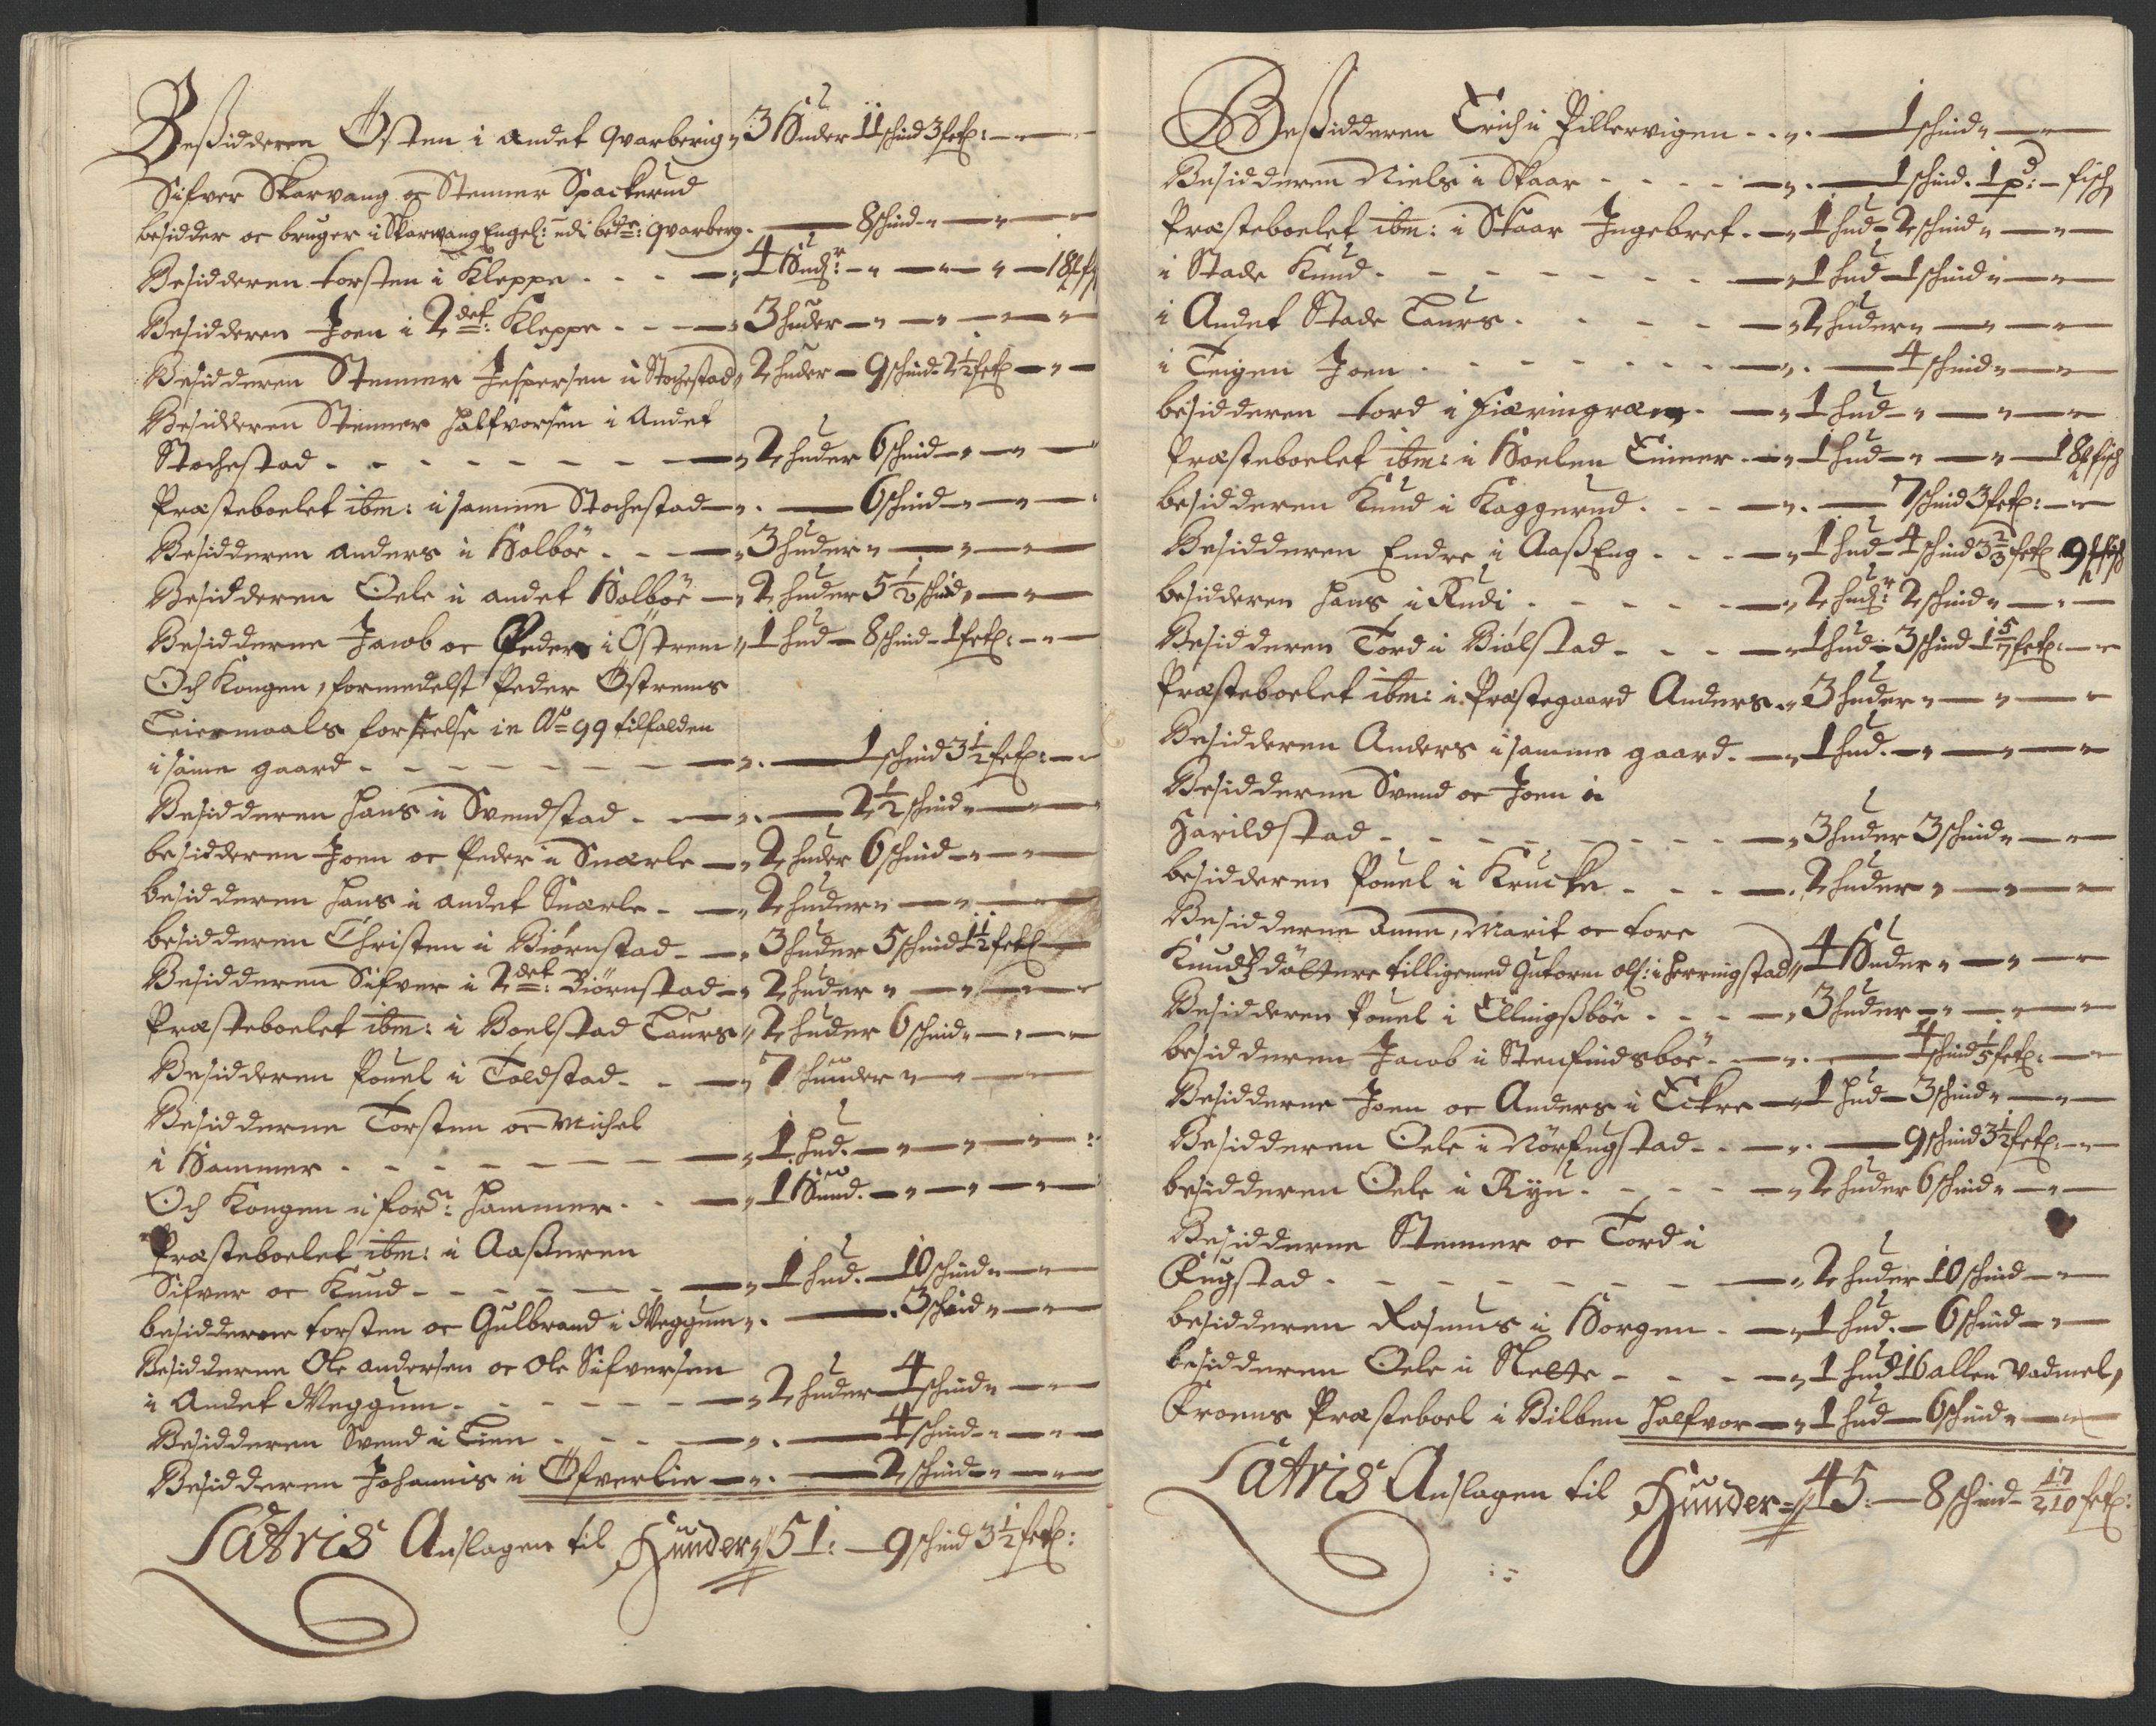 Beßidderen Östen i andet qvarberig 3 Huder 11 schind 3 fetβ:
Sifver Skarvang oc Stenner Spackerud
besidder oc bruger i Skarwang Engel: udi bedte: qvarberg. 8 schind
Besidderen torsten i Kleppe 4 Hudr: 18 ℔ f
Besidderen Joen i 2det: Kleppe 3 huder
Besidderen Stenner Jespersen i Stochestad 2 huder 9 schind 2½ fetβ
Besidderen Stenner halfvorsen i Andet
Stochestad 2 huder 6 schind
Præsteboelet ibm: i samme Stochestad 6 schind
Besidderen anders i Holböe 3 huder
Besidderen Oele i andet Holböe 2 huder 5½ schind
Besidderne Jacob oc Peder i Östrem 1 hud 8 schind 1 fetβ:
Och Kongen, formedelst Peder Östrems
Leiermaals forseelse in Ao 99 tilfalden
i sam̅e gaard 1 schind 3½ fetβ:
Besidderen hans i Svendstad 2½ schind
besidderen Joen oc Peder i Snærle 2 huder 6 schind
besidderen hans i andet Snærle 2 huder
besidderen Christen i Biørnstad 3 huder 5 schind 1½ fetβ
Besidderen Sifver i 2det: Biörnstad 2 huder
Præsteboelet ibm: i Boelstad Laurs 2 huder 6 schind
Besidderen Pouel i Toldstad 7 hunder
Besidderne Torsten oc Michel
i Hammer 1 hud.
Och Kongen i forn: hammer 1 Hund.
Præsteboelet ibm: i Aaßeren
Sifver oc Knud 1 hud. 10 schind
besidderne torsten oc Gulbrand i Veggum 3 schind
Besidderne Ole andersen oc Ole Sifversen
i Andet Veggum 2 huder 4 schind
Besidderen Svend i Lien 4 schind
Besidderen Johannis i Öfverlie 2 schind
Latris Anslagen til Hunder 51: 9 schind 3½ fetβ:
Beßidderen Erich i Pillervigen 1 schind
Besidderen Niels i Skaar 1 schind. 1 pd: fisch
Præsteboelet ibm: i Skaar Ingebret 1 hud 2 schind
i Stade Knud 1 hud 1 schind
i Andet Stade Laurs 2 huder
i Teigen Joen 4 schind
besidderen tord i Fiæringræn 1 hud
Præsteboelet ibm: i Hoelen Einer 1 hud 18 ℔ fisch
besidderen Knud i Kaggerud 7 schind 3 fetβ:
Besidderen Endre i AaßEng 1 hud 4 schind 3⅔ fetβ 9 ℔ fisch
besidderen hans i Rudi 2 hudr: 2 schind
Besidderen Tord i Biölstad 1 hud 3 schind 1 5/7 fetβ:
Præsteboelet ibm: i Præstegaard Anders 3 huder
Besidderen Anders i samme gaard 1 hud.
Besidderne Svend oc Joen i
Harildstad 3 huder 3 schind
besidderen Pouel i Krucke 2 huder
Besidderne Anne, Marit oc tore
Knudβ döttere tilligemed Gutorm olβ: i herringstad 4 Huder
Besidderen Pouel i Ellingßböe 3 huder
besidderen Jacob i Stenfindsböe 4 schind 1/5 fetβ:
Besidderne Joen oc Anders i Eckre 1 hud 3 schind
Besidderen Oele i Nörfugstad 9 schind 3½ fetβ:
besidderen Oele i Ryu 2 huder 6 schind
Besidderne Stenner oc Tord i
Fugstad 2 huder 10 schind
besidderen Rasmus i Horgen 1 hud. 6 schind
besidderen Oele i Slette 1 hud 16 allen Vadmel,
Froens Præsteboel i Bilben halfvor 1 hud 6 schind
Latris Anslagen til Hunder 45: 8 schind 17/210 fetβ: